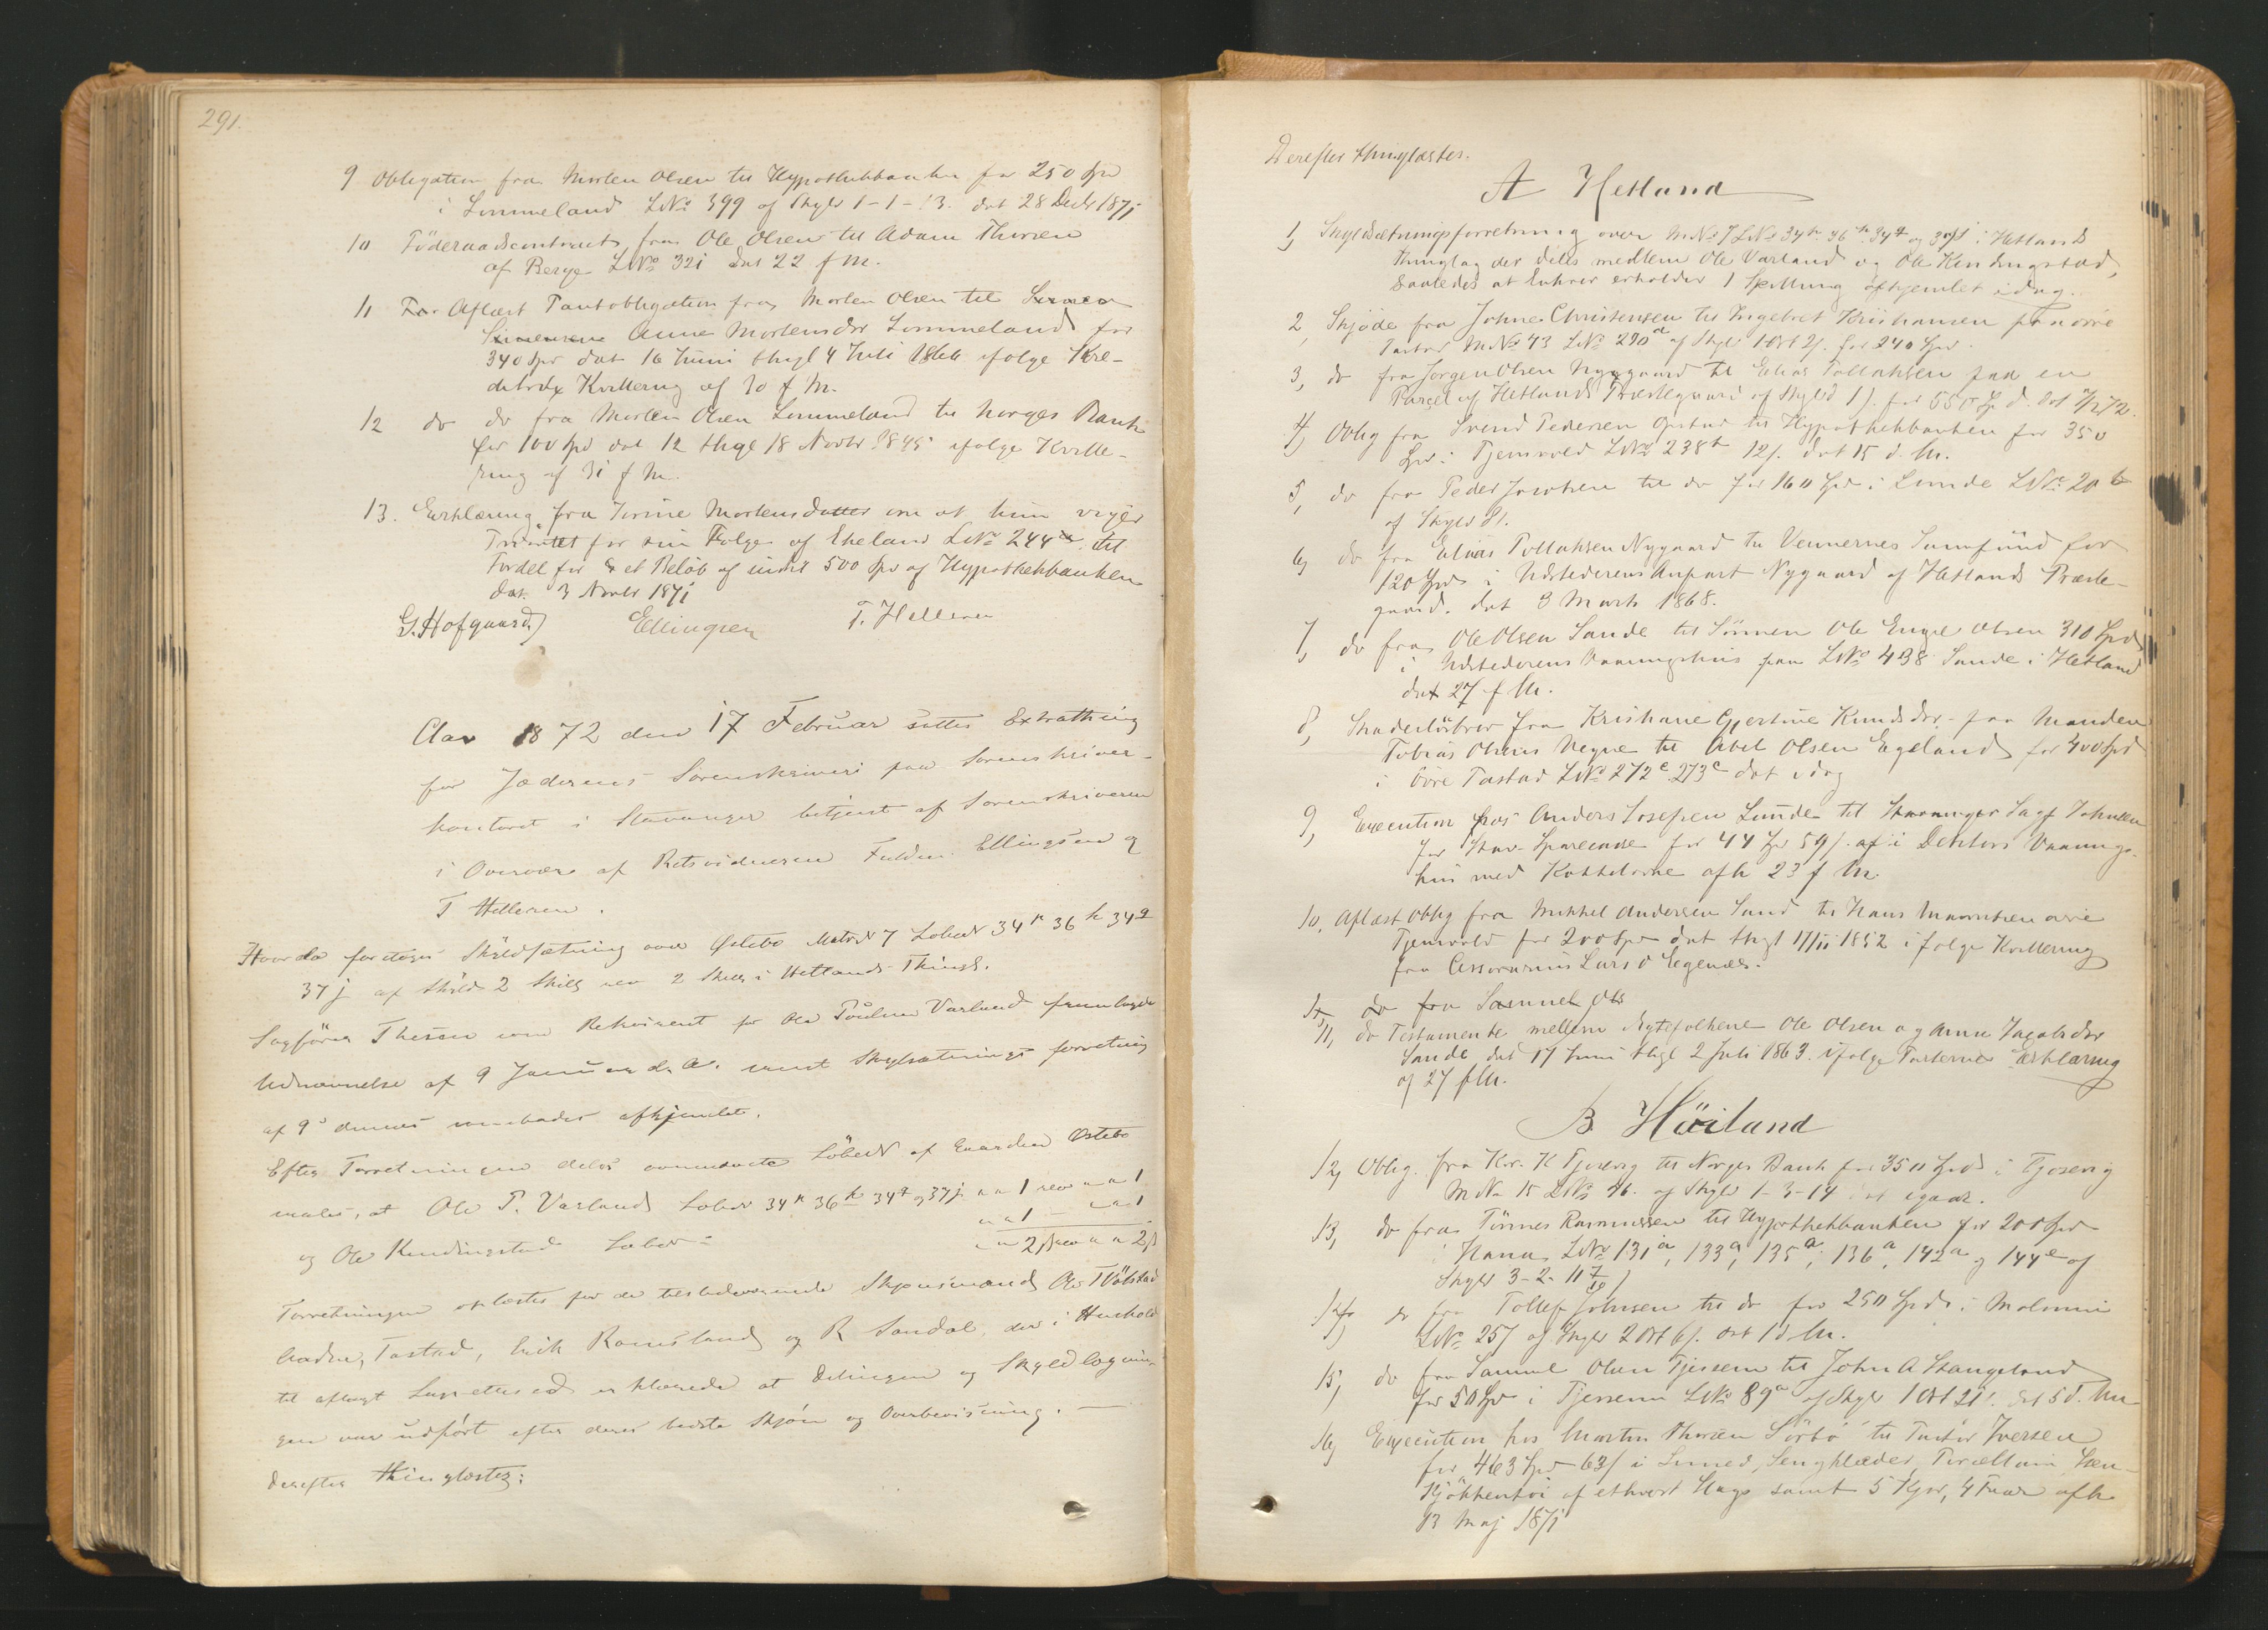 291.
9 Obligation fra Morten Olsen til Hypothekbanken for 250 Spd
i Lommeland LNo 399 af Skyld 1-1-13. dat 28 Decbr 1871
10 Föderaadscontract fra Ole Olsen til Adam Thorsen
af Berge LNo 321 dat 22 f M.
11 Aflæst Pantobligation fra Morten Olsen til
Simensen Anne Mortensdtr Lommeland for
340 Spd dat 16 Juni thgl 4 Juli 1866 ifølge Kre-
ditors Kvittering af 30 f M.
12 do do fra Morten Olsen Lommeland til Norges Bank
for 100 Spd dat 12 thgl 18 Novbr 1845 ifølge Kvitte-
ring af 31 f M.
13. Erklæring fra Torine Mortensdatter om at hun viger
Prioritet for sin af Eheland LNo 244 til
Fordel for et Beløb af indtil 500 Spd af Hypothekbanken
dat. 3 Novbr 1871
G. Hofgaard Ellingsen T. Helleren
Aar 1872 den 17 Februar sattes Extrathing
for Jæderens Sorenskriveri paa Sorenskriver-
kontoret i Stavanger betjent af Sorenskriveren
i Overvær af Retsvidnerne Fuldm. Ellingsen og
T Helleren.
Hvorda foretoges Skyldsætning over Østebø Matr No 7 Løbe No 34 k 36 h 34 q
37 j af Skyld 2 Skill rev 2 Skill i Hetlands Thingl.
Sagfører Thesen som Rekvirent for Ole Poulsen Varland fremlagde
Udnævnelse af 9 Januar d. A. samt Skyldsætningsforretning
af 9 dennes afhjemlet.
Efter Forretningen deles ommeldte Løbe No af Gaarden Østebø
saales, at Ole P. Varlands Løbe No 34 k 36 h 34 q og 37 j " " 1 rev " " 1
og Ole Kindingstad Løbe No " " 1 — " " 1
" " 2 ß rev " " 2 ß
Forretningen oplæstes for de tilstedeværende Skjønsmænd Ole Tvölstad
Tastad, Erik Ramsland og R Sandal, der i Henhold
til aflagt Lagrettesed erklærede at Delingen og Skyldlægnin-
gen var udført efter deres bedste Skjøn og Overbevisning. —
derefter thinglæstes:
Derefter thinglæstes.
A Hetland
1, Skyldsætningsforretning over MNo 7 LNo 34 k. 36 h. 34 q og 37 j i Hetlands
Thinglag der deles mellem Ole Varland og Ole Kindingstad,
saaledes at Enhver erholder 1 Skilling afhjemlet idag.
2, Skjøde fra Johne Christensen til Ingebret Kristiansen paa øvre
Tastad MNo 43 LNo 290 d af Skyld 1 Ort 2 ß. for 240 Spd.
3, do fra Jorgen Olsen Nygaard til Elias Tollaksen paa en
Parcel af Hetlands Præstegaard af Skyld 1 ß. for 550 Spd. dat 72.
4, Oblig fra Svend Pedersen til Hypothekbanken for 350
Spd i Tjensvold LNo 238 12 ß. dat 15 d. M.
5, do fra Peder Jacobsen til do for 160 Spd i Lunde LNo 20 b
af Skyld 8 ß.
6, do fra Elias Tollaksen Nygaard til Vennernes Samfund for
120 Spd i Udstederens Anpart Nygaard af Hetlands Præste-
gaard. dat 3 Marts 1868.
7, do fra Ole Olsen Sande til Sönnen Ole Enge Olsen 310 Spd
i Udstederens Vaaningshus paa LNo 438 Sande i Hetland
dat 27 f M.
8, Skadeslösbrev fra Kristiane Gjertine Knudsdtr. paa Manden
Tobias Olsens Vegne til Abel Olsen Egeland for 400 Spd
i övre Tastad LNo 272 c 273 c dat idag
9, Execution hos Anders Josefsen Lunde til Stavanger Sagf Johnsen
for Stav. Sparecasse for 44 Spd 59 ß. i Debitors Vaanings-
hus med Kakkelovne afh 23 f M.
10, Aflæst Oblig fra Mikkel Andersen Sund til Hans
Tjensvold for 200 Spd dat thgl 17/11 1852 i følge Kvittering
fra Cessionarius Lars Egenæs.
11, do fra Samuel Ols
11, do Testamente mellem Ægtefolkene Ole Olsen og Anne Jacobsdtr
Sande dat 17 Juni thgl 2 Juli 1863. ifølge Parternes erklæring
af 27 f M.
B. Höiland
12, Oblig. fra Kr. K Tjosevig til Norges Bank for 350 Spd i Tjosevig
MNo 15 LNo 46. af Skyld 1-3-14 dat igaar.
13, do fra Tönnes Rasmussen til Hypothekbanken for 200 Spd
i Hana LNo 131 a, 133 a, 135 a, 136 a, 142 a og 144 e af
Skyld 3-2-11 7/10 ß
14, do fra Tollef Johnsen til do for 250 Spd i Malmin
LNo 257 af Skyld 2 Ort 6 ß. dat 1 d M.
15, do fra Samuel Olsen Tjessem til John A Stangeland
for 50 Spd i Tjessem LNo 89 a af Skyld 1 Ort 21 ß. dat 5 d. M.
16, Execution hos Martin Thorsen Sörbö til Iversen
for 463 Spd 63 ß i Sengklæder,
Kjökkentöi af ethvert Slags samt 5 Kjör, 4 Faar afh.
13 Maj 1871